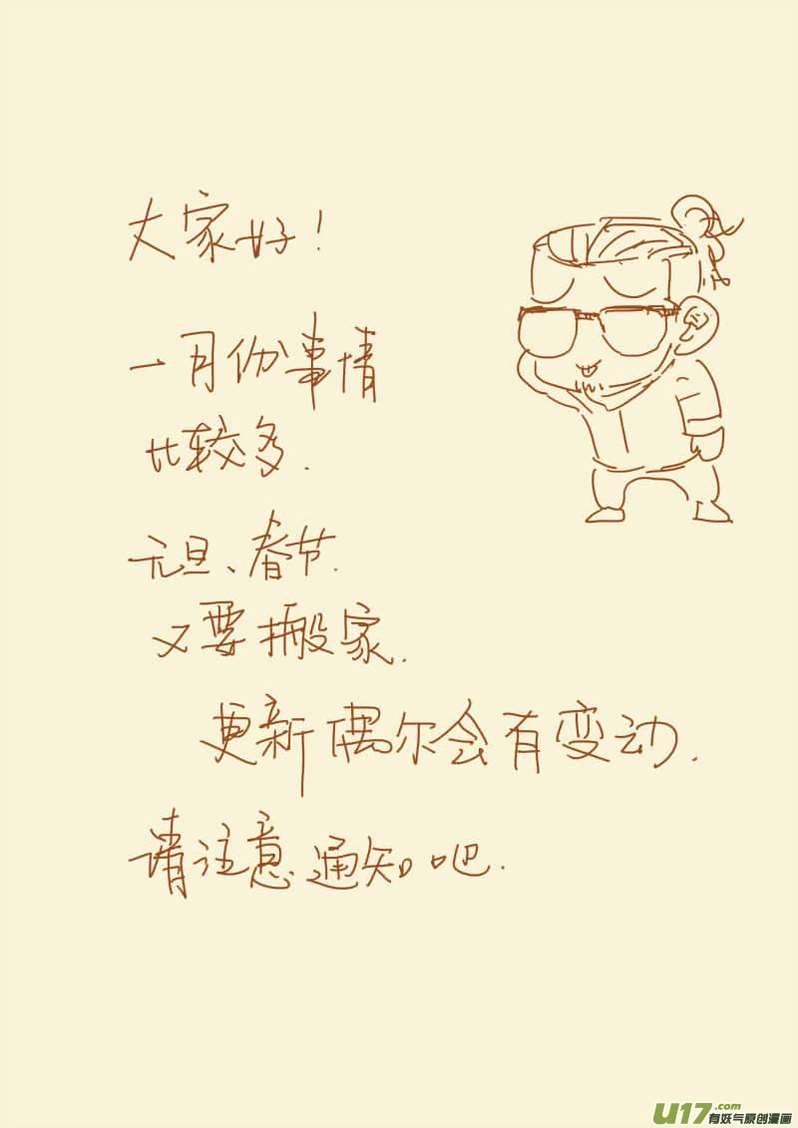 大家好!
一月份事情
比较多.
元旦、春节.
又要搬家.
更新偶尔会有变动.
请注意通知吧.
U17.com
有妖气原创漫画